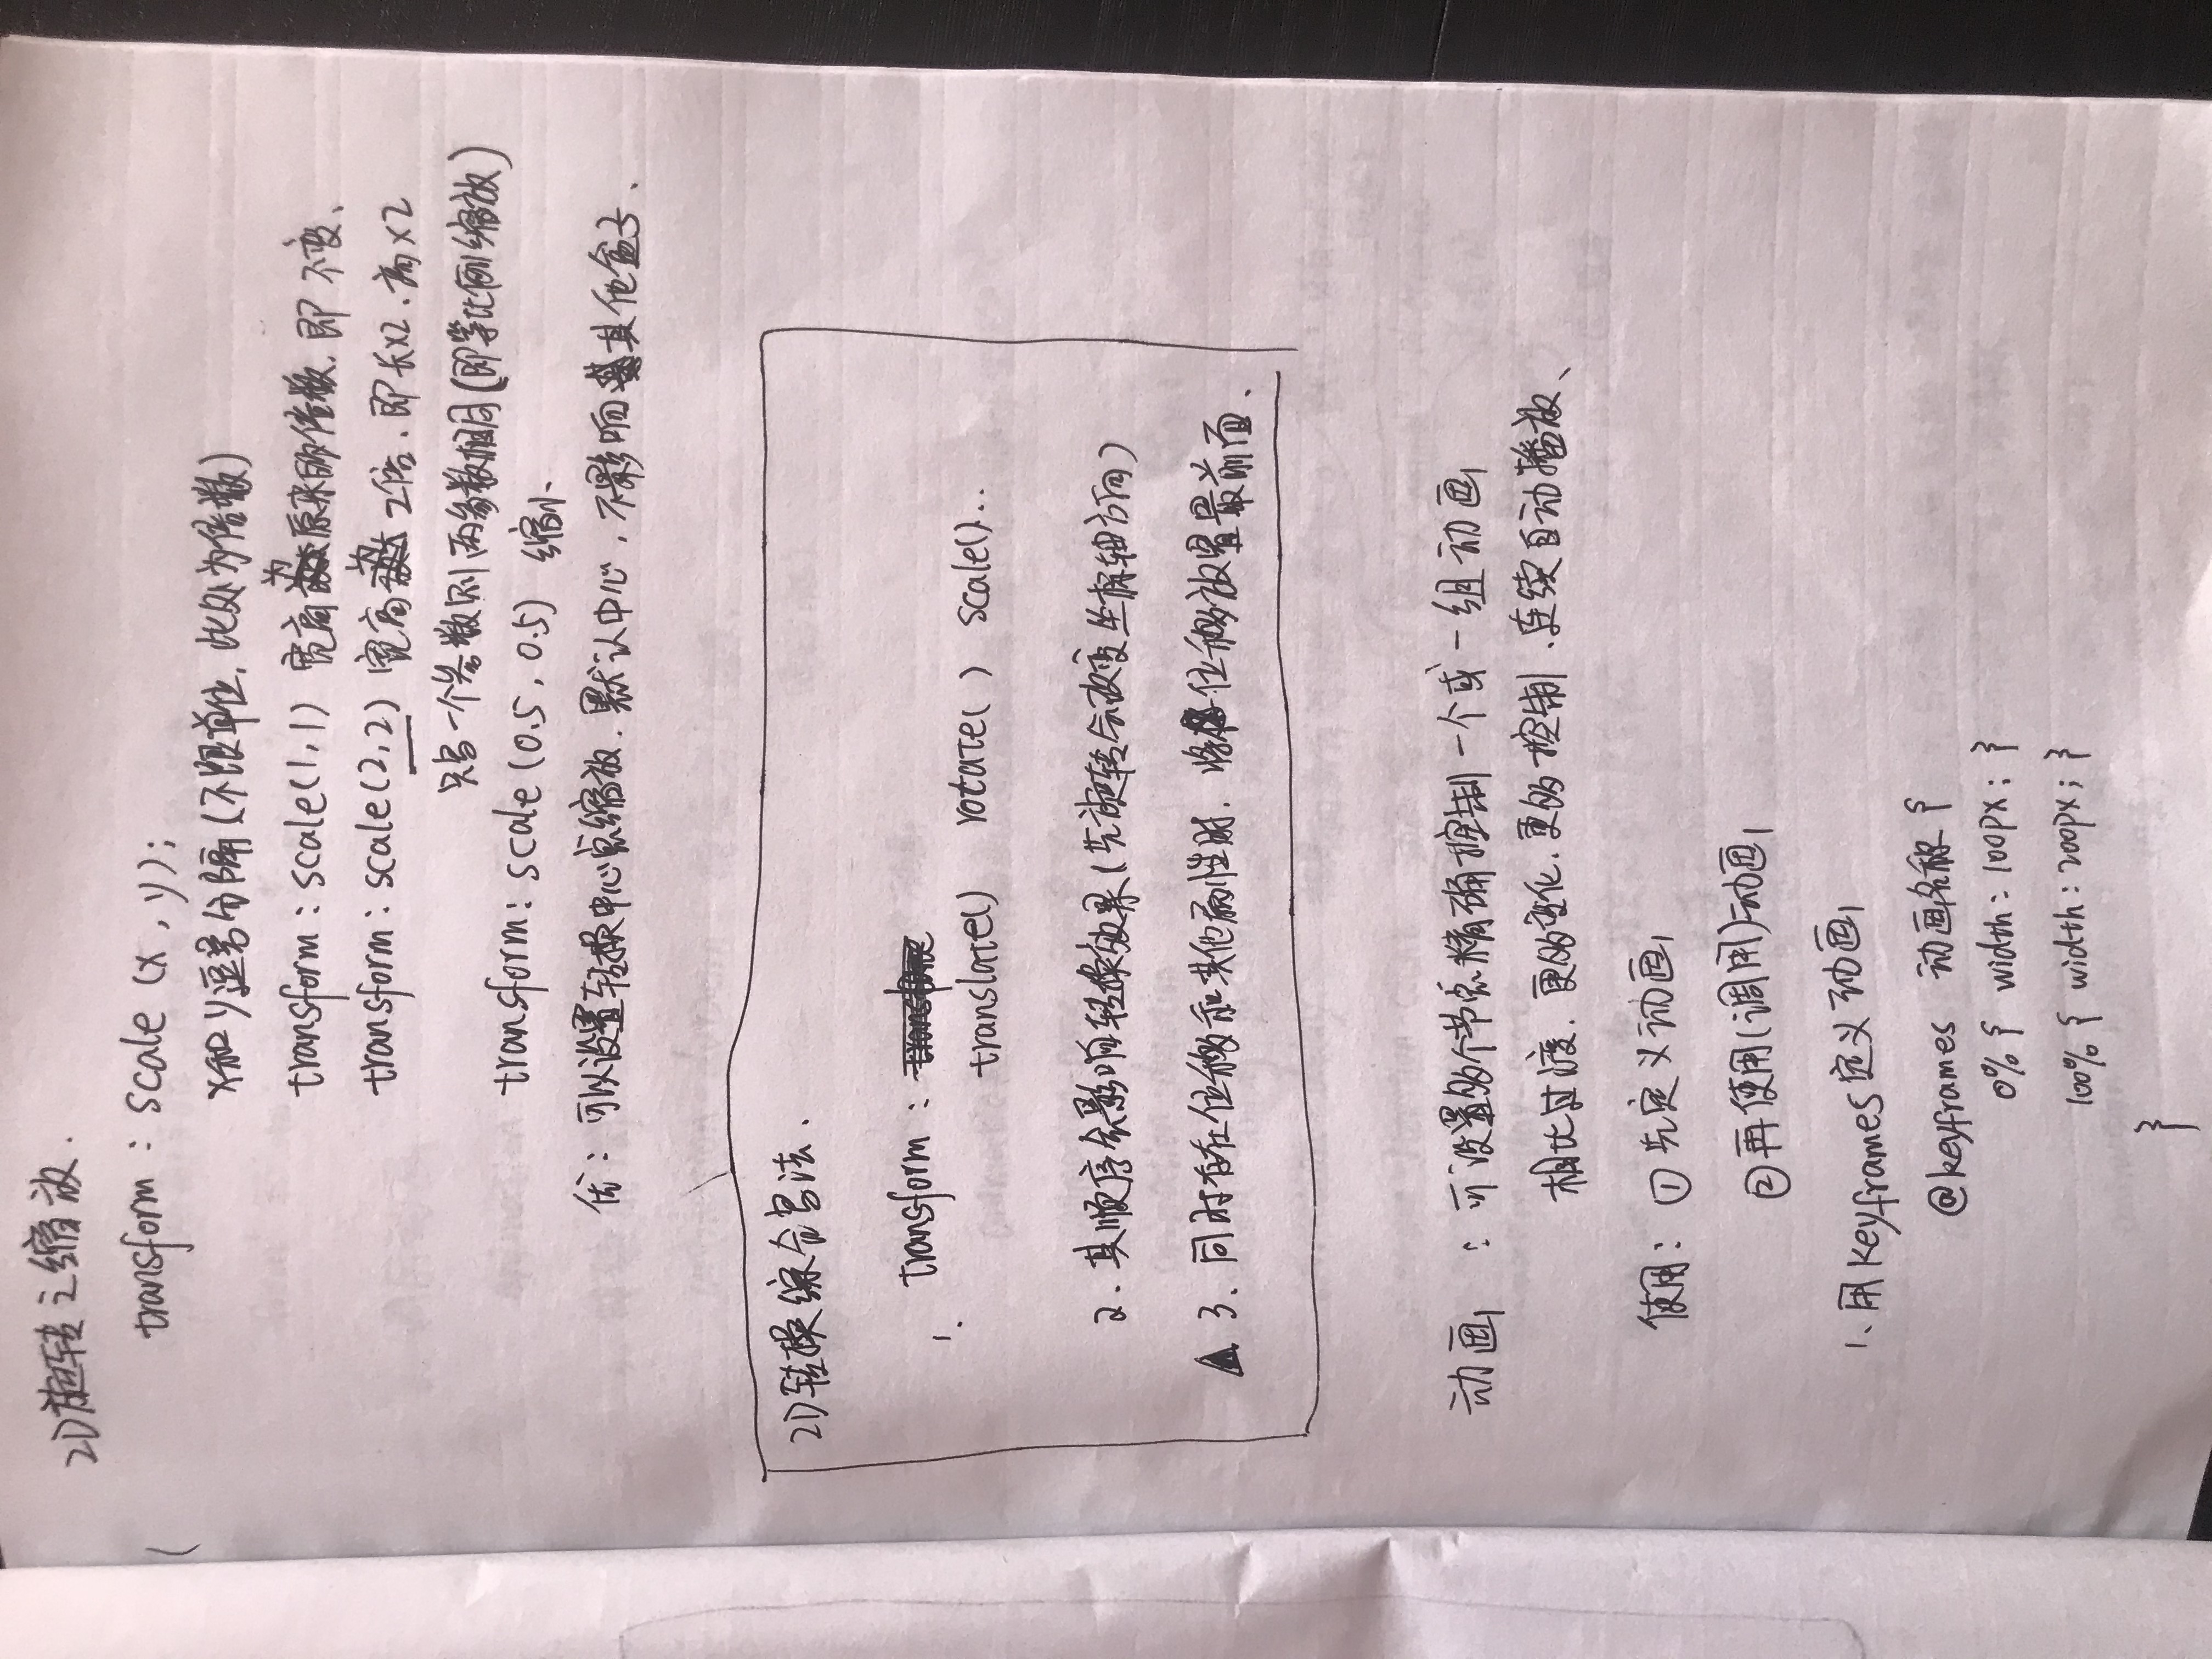 2D旋转之缩放.
transform : scale (x , y);
x和y逗号分隔(不跟单位, 此处为倍数)
transform : scale(1, 1) 宽高为原来的倍数. 即不变、
transform : scale(2, 2) 宽高为2倍. 即长x2. 高x2
只写一个参数则两参数相同(即等比例缩放)
transform: scale (0.5, 0.5) 缩小
优: 可以设置转换中心点缩放. 默认中心, 不影响其他盒子.
2D转换综合写法.
1. transform :
translate() rotate( ) scale()...
2. 其顺序会影响转换效果(先旋转会改变坐标轴方向)
▲ 3. 同时存在位移和其他属性时. 将位移放置最前面.
动画 : 可设置多个节点精确控制一个或一组动画
相比过渡. 更多变化. 更多控制. 连续自动播放、
使用: ①先定义动画
②再使用(调用)动画
1、用keyframes定义动画
@keyframes 动画名称 {
0% { width: 100px; }
100% { width: 200px; }
}